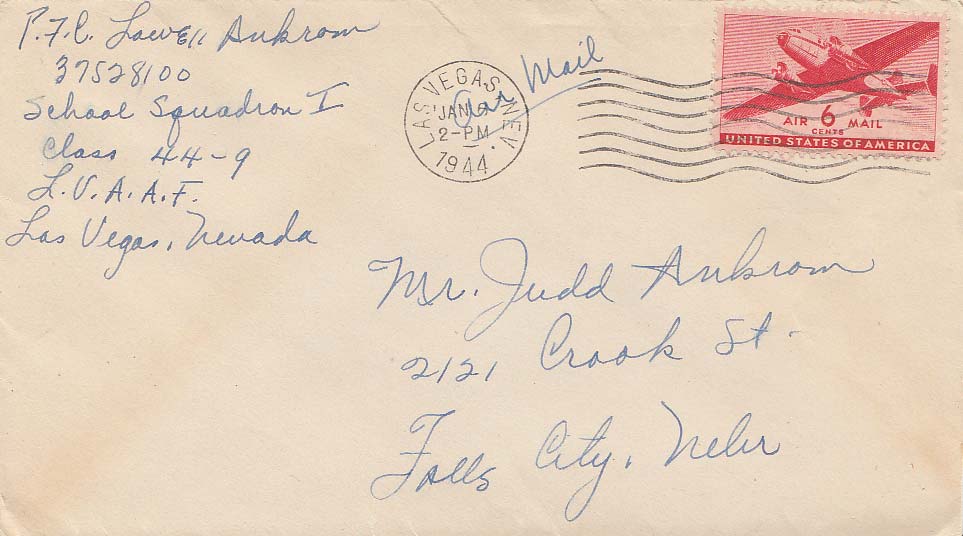 P.F.C. Lowell Ankrom
37528100
School Squadron I
Class 44-9
L.V.A.A.F.
Las Vegas, Nevada
Air Mail
LAS VEGAS NEV.
JAN
2-PM
1944
AIR 6 MAIL
CENTS
UNITED STATES OF AMERICA
Mr. Judd Ankrom
2121 Crook St.
Falls City, Nebr